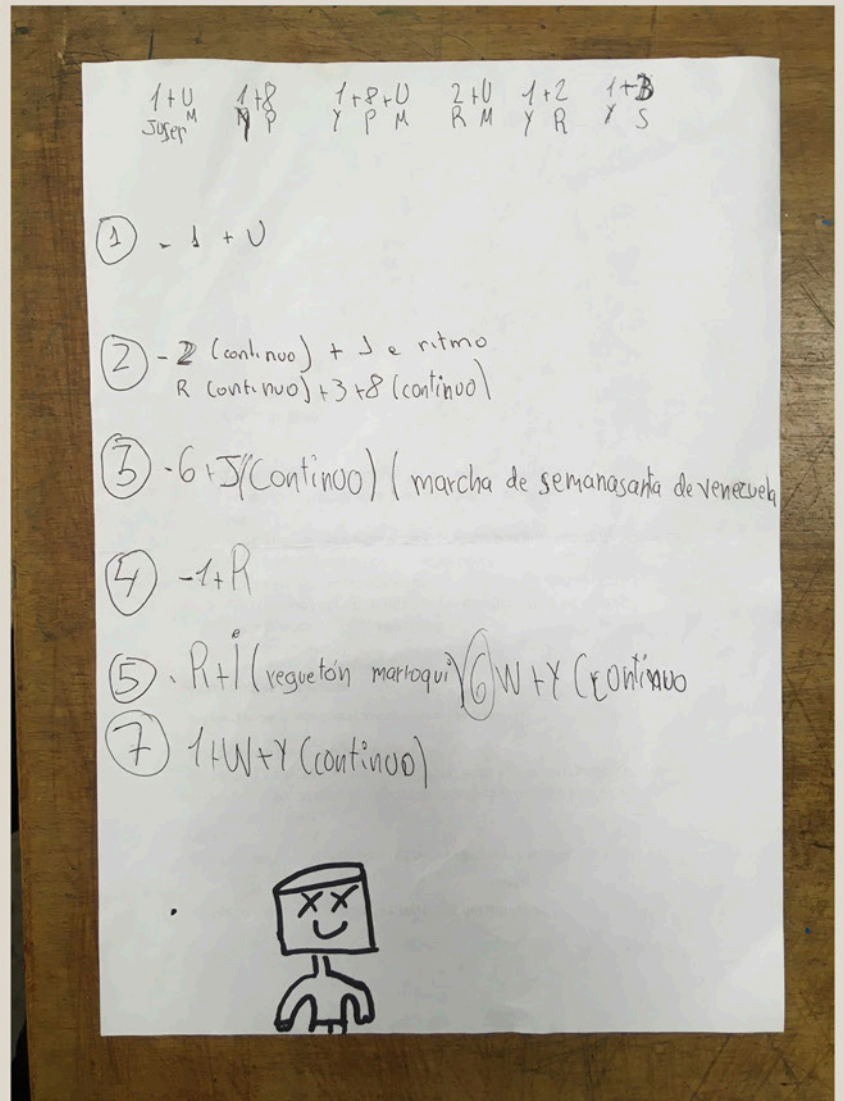 1+U 1+8 1+8+U 2+U 1+2 1+3
M P Y P M R M Y R Y S
Juser
① - 1 + U
② - 2 (continuo) + J e ritmo
R (continuo) + 3 + 8 (continuo)
③ - 6 + J (Continuo) ( marcha de semanasanta de venezuela
④ - 1 + R
⑤ . R + i (reguetón marroqui) ⑥ W + Y (continuo
⑦ 1 + W + Y (continuo)